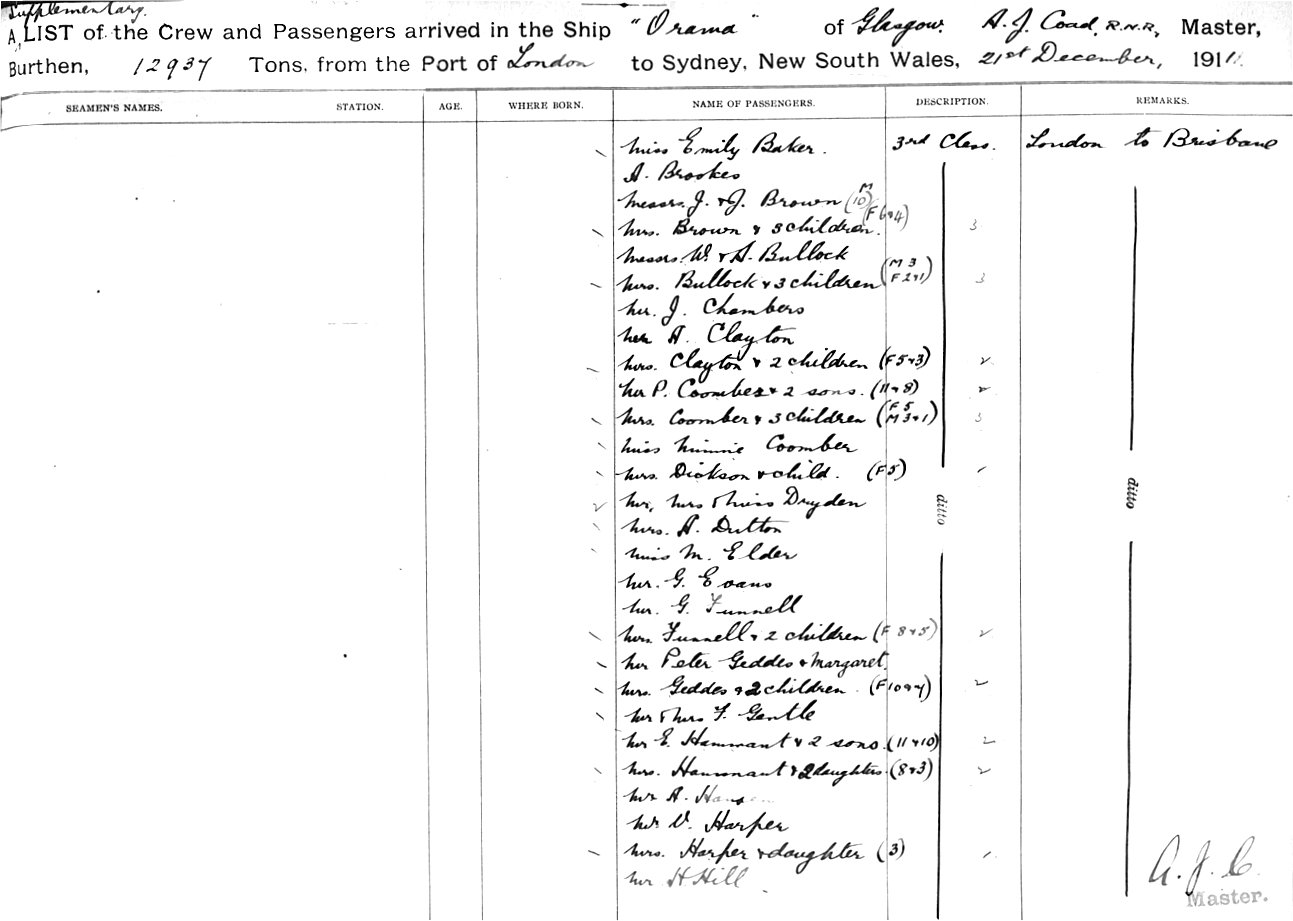 Supplementary.
A LIST of the Crew and Passengers arrived in the Ship "Orama" of Glasgow. A. J. Coad, R.N.R, Master,
Burthen, 12937 Tons, from the Port of London to Sydney, New South Wales, 21st December, 1911.
SEAMEN'S NAMES. STATION. AGE. WHERE BORN. NAME OF PASSENGERS. DESCRIPTION. REMARKS.
Miss Emily Baker. 3rd Class. London to Brisbane
A. Brookes
Messrs. J. & J. Brown (M 10)
Mrs. Brown & 3 children. (F 6 & 4) 3
Messrs W. & A. Bullock
Mrs. Bullock & 3 children (M 3 F 2 & 1) 3
Mr. J. Chambers
Mr A. Clayton
Mrs. Clayton & 2 children (F 5 & 3) 2
Mr P. Coomber & 2 sons. (11 & 8) 2
Mrs. Coomber & 3 children (F 5 M 3 & 1) 3
Miss Minnie Coomber
Mrs. Dickson & child. (F 5) 1
Mr, Mrs & Miss Dryden ditto ditto
Mrs. A. Dutton
Miss M. Elder
Mr. G. Evans
Mr. G. Funnell
Mrs. Funnell & 2 children (F 8 & 5) 2
Mr Peter Geddes & Margaret.
Mrs. Geddes & 2 children. (F 10 & 4) 2
Mr & Mrs F. Gentle
Mr E. Hammant & 2 sons. (11 & 10) 2
Mrs. Hammant & 2 daughters. (8 & 3) 2
Mr A.
Mr V. Harper
Mrs. Harper & daughter (3) 1
Mr H Hill
A. J. C.
Master.